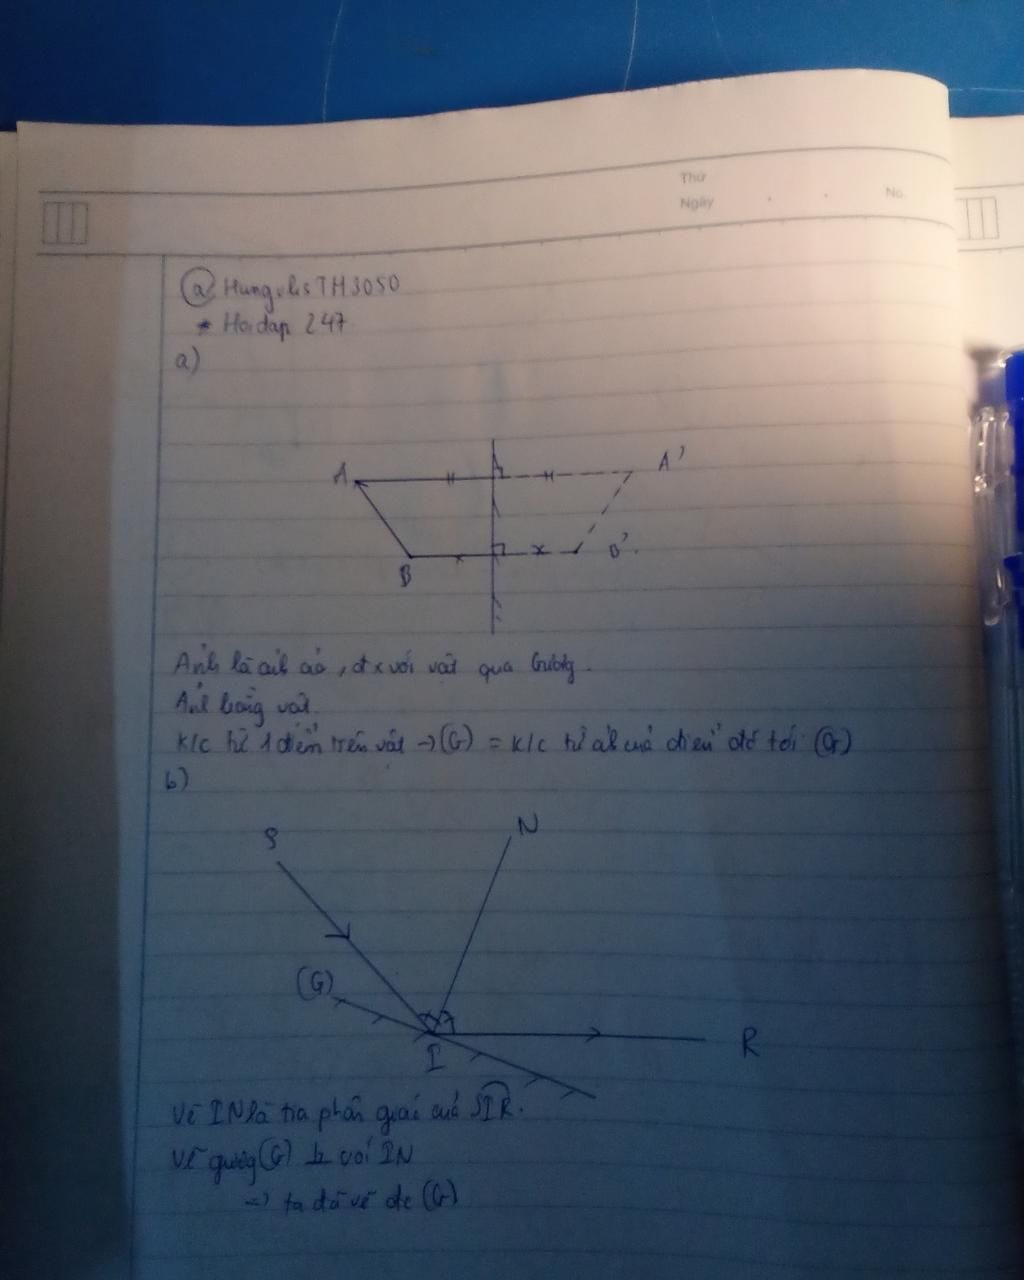 Thứ
Ngày . . No.
@ HungclsTH3050
* Hoidap 247
a)
A A'
B B'.
Ảnh là ảh ảo, đx với vật qua Gương.
Ảnh bằng vật.
K/c từ 1 điểm trên vật → (G) = K/c từ ảh của điểm đó tới (G)
b)
S N
(G)
I R
Vẽ IN là tia phân giác của SIR.
Vẽ gương (G) với IN
=> ta đã vẽ đc (G)